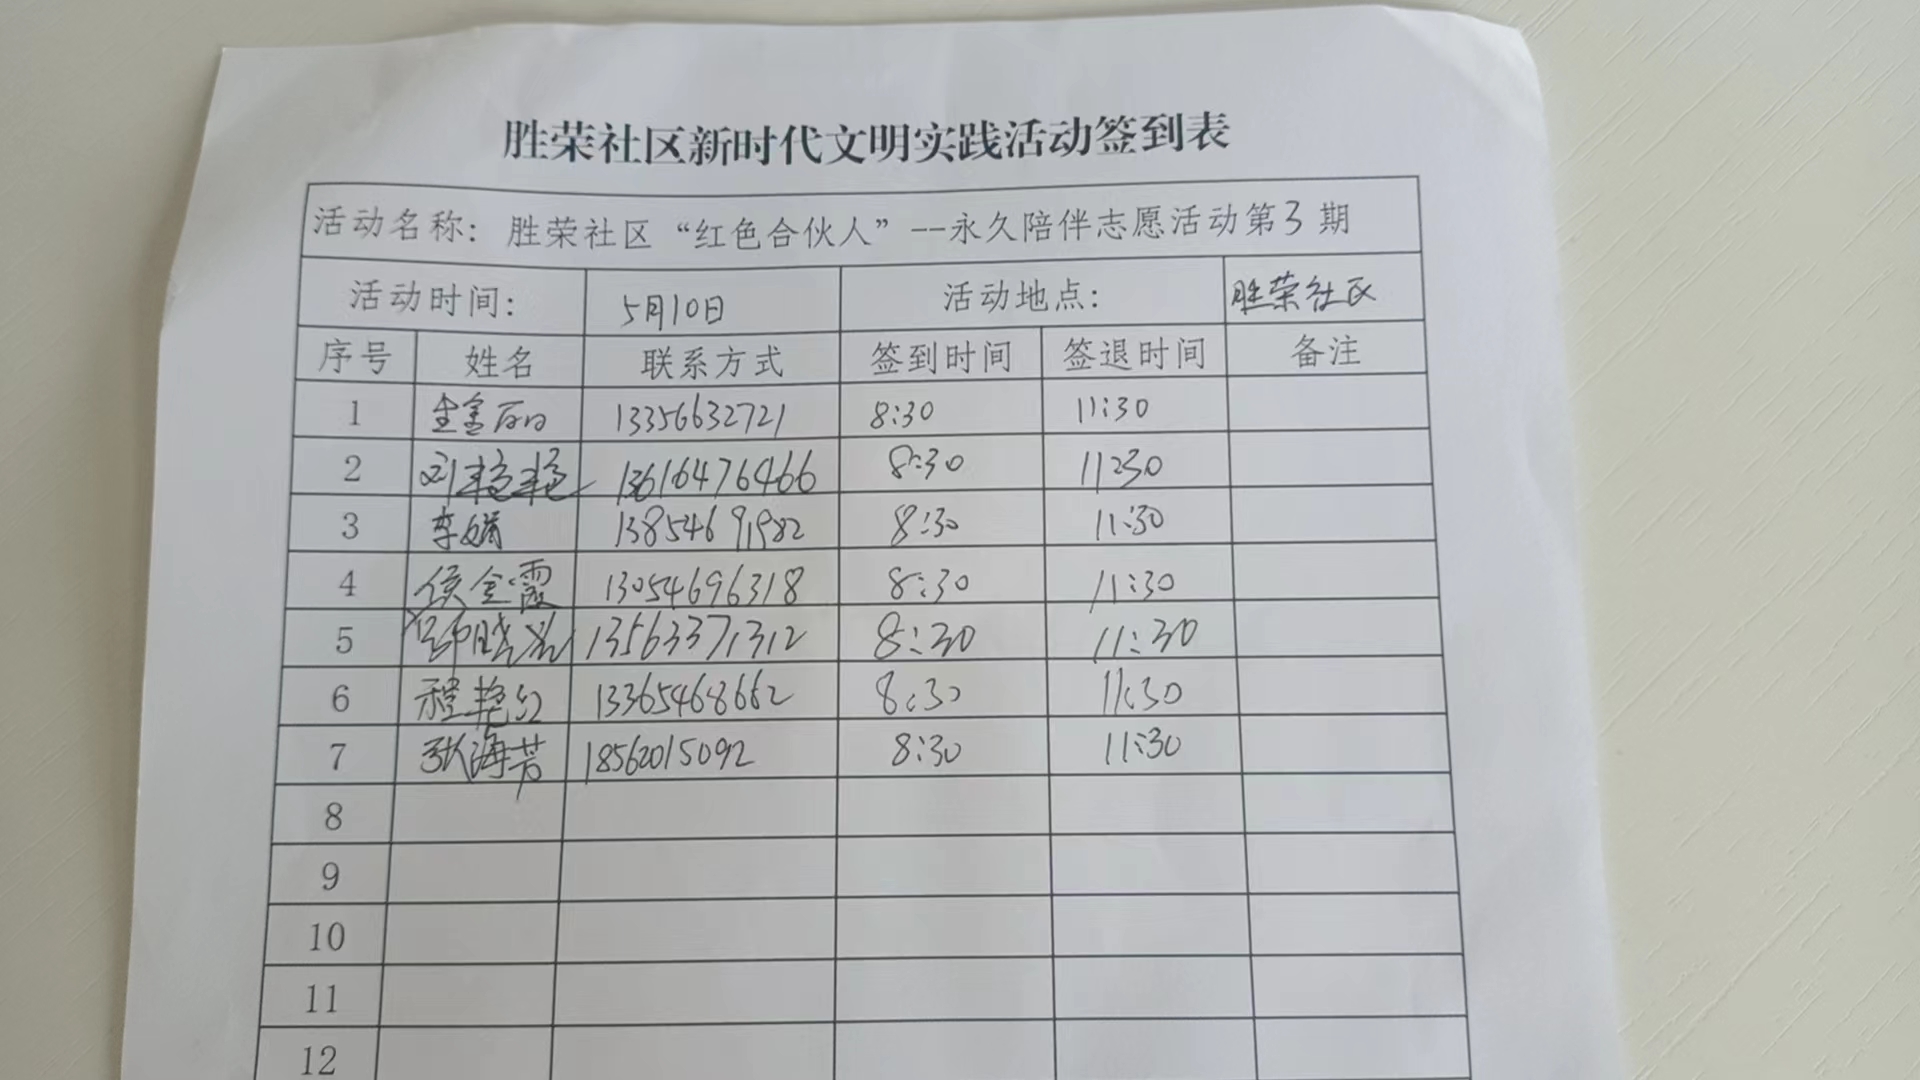 胜荣社区新时代文明实践活动签到表
活动名称：胜荣社区“红色合伙人”--永久陪伴志愿活动第3期
活动时间： 5月10日 活动地点： 胜荣社区
序号 姓名 联系方式 签到时间 签退时间 备注
1 13356632721 8:30 11:30
2 刘艳艳 13616476466 8:30 11:30
3 李娟 13854691982 8:30 11:30
4 侯金霞 13054696318 8:30 11:30
5 13563371312 8:30 11:30
6 程艳红 13365468662 8:30 11:30
7 张海芳 18562015092 8:30 11:30
8
9
10
11
12